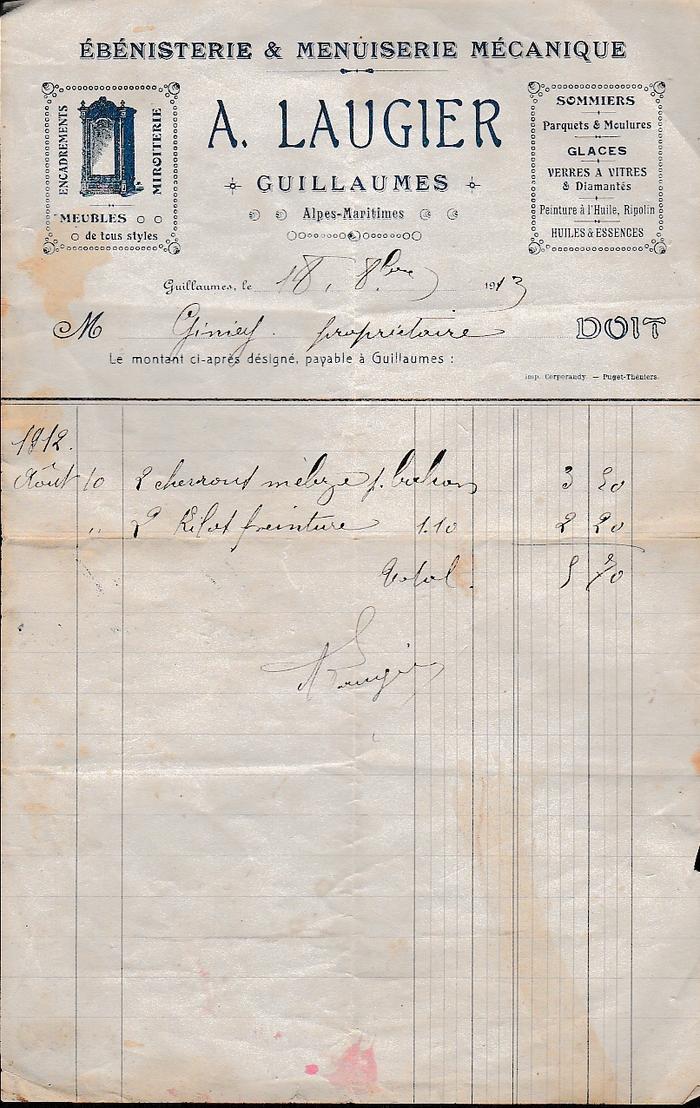 ÉBÉNISTERIE & MENUISERIE MÉCANIQUE
ENCADREMENTS
MIROITERIE
MEUBLES
de tous styles
A. LAUGIER
GUILLAUMES
Alpes-Maritimes
SOMMIERS
Parquets & Moulures
GLACES
VERRES A VITRES
& Diamantés
Peinture à l'Huile, Ripolin
HUILES & ESSENCES
Guillaumes, le 18, 8bre 1913
M Giniey. propriétaire DOIT
Le montant ci-après désigné, payable à Guillaumes :
Imp. Corporandy. — Puget-Théniers.
1912.
Août 10 2 chevrons mélèze p. 3 50
" 2 Kilos peinture 1.10 2 20
Total. 5 70
A Laugier